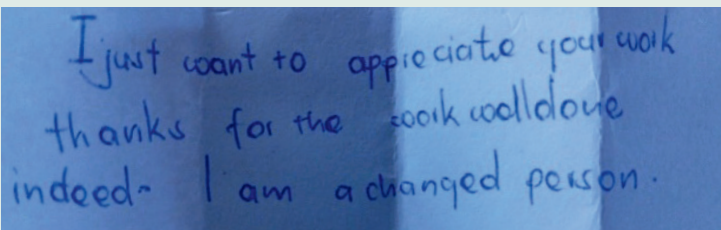 I just want to appreciate your work
thanks for the work welldone
indeed~ I am a changed person.